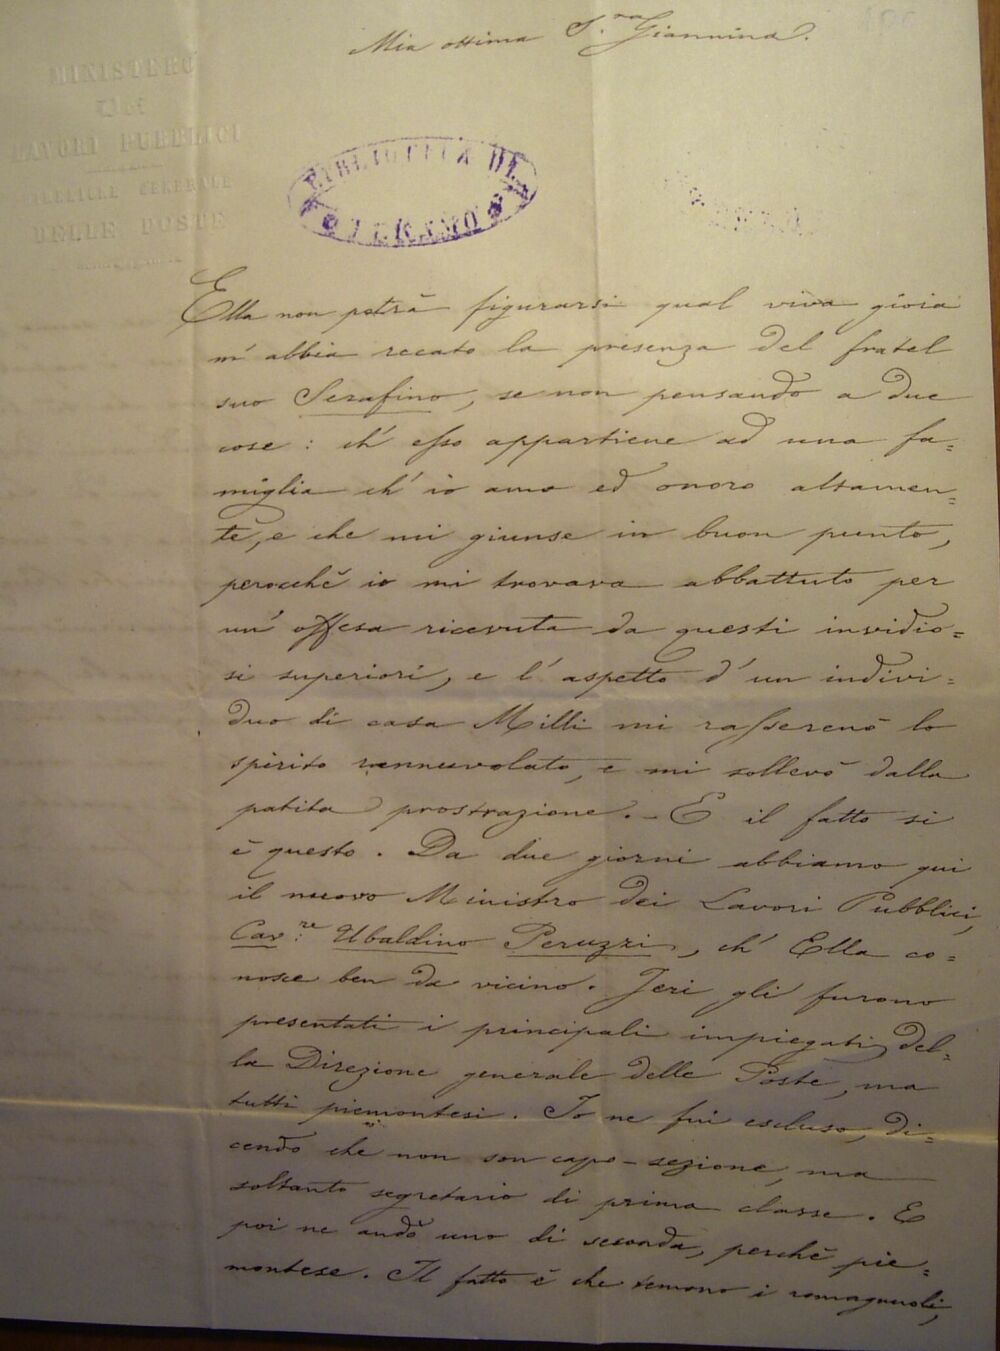 Mia ottima S.ra Giannina.
MINISTERO
DEI
LAVORI PUBBLICI
DIREZIONE GENERALE
DELLE POSTE
BIBLIOTECA DI
TERAMO
Ella non potrà figurarsi qual viva gioia
m'abbia recato la presenza del fratel
suo Serafino, se non pensando a due
cose: ch'esso appartiene ad una fa=
miglia ch'io amo ed onoro altamen=
te, e che mi giunse in buon punto,
perocchè io mi trovava abbattuto per
un'offesa ricevuta da questi invidio=
si superiori, e l'aspetto d'un indivi=
duo di casa Milli mi rasserenò lo
spirito rannuvolato, e mi sollevò dalla
patita prostrazione. - E il fatto si
è questo. Da due giorni abbiamo qui
il nuovo Ministro dei Lavori Pubblici,
Cav.re Ubaldino Peruzzi, ch'Ella co=
nosce ben da vicino. Jeri gli furono
presentati i principali impiegati del=
la Direzione generale delle Poste, ma
tutti piemontesi. Io ne fui escluso, di=
cendo che non son capo-sezione, ma
soltanto segretario di prima classe. E
poi ne andò uno di seconda, perchè pie=
montese. Il fatto è che temono i romagnuoli,